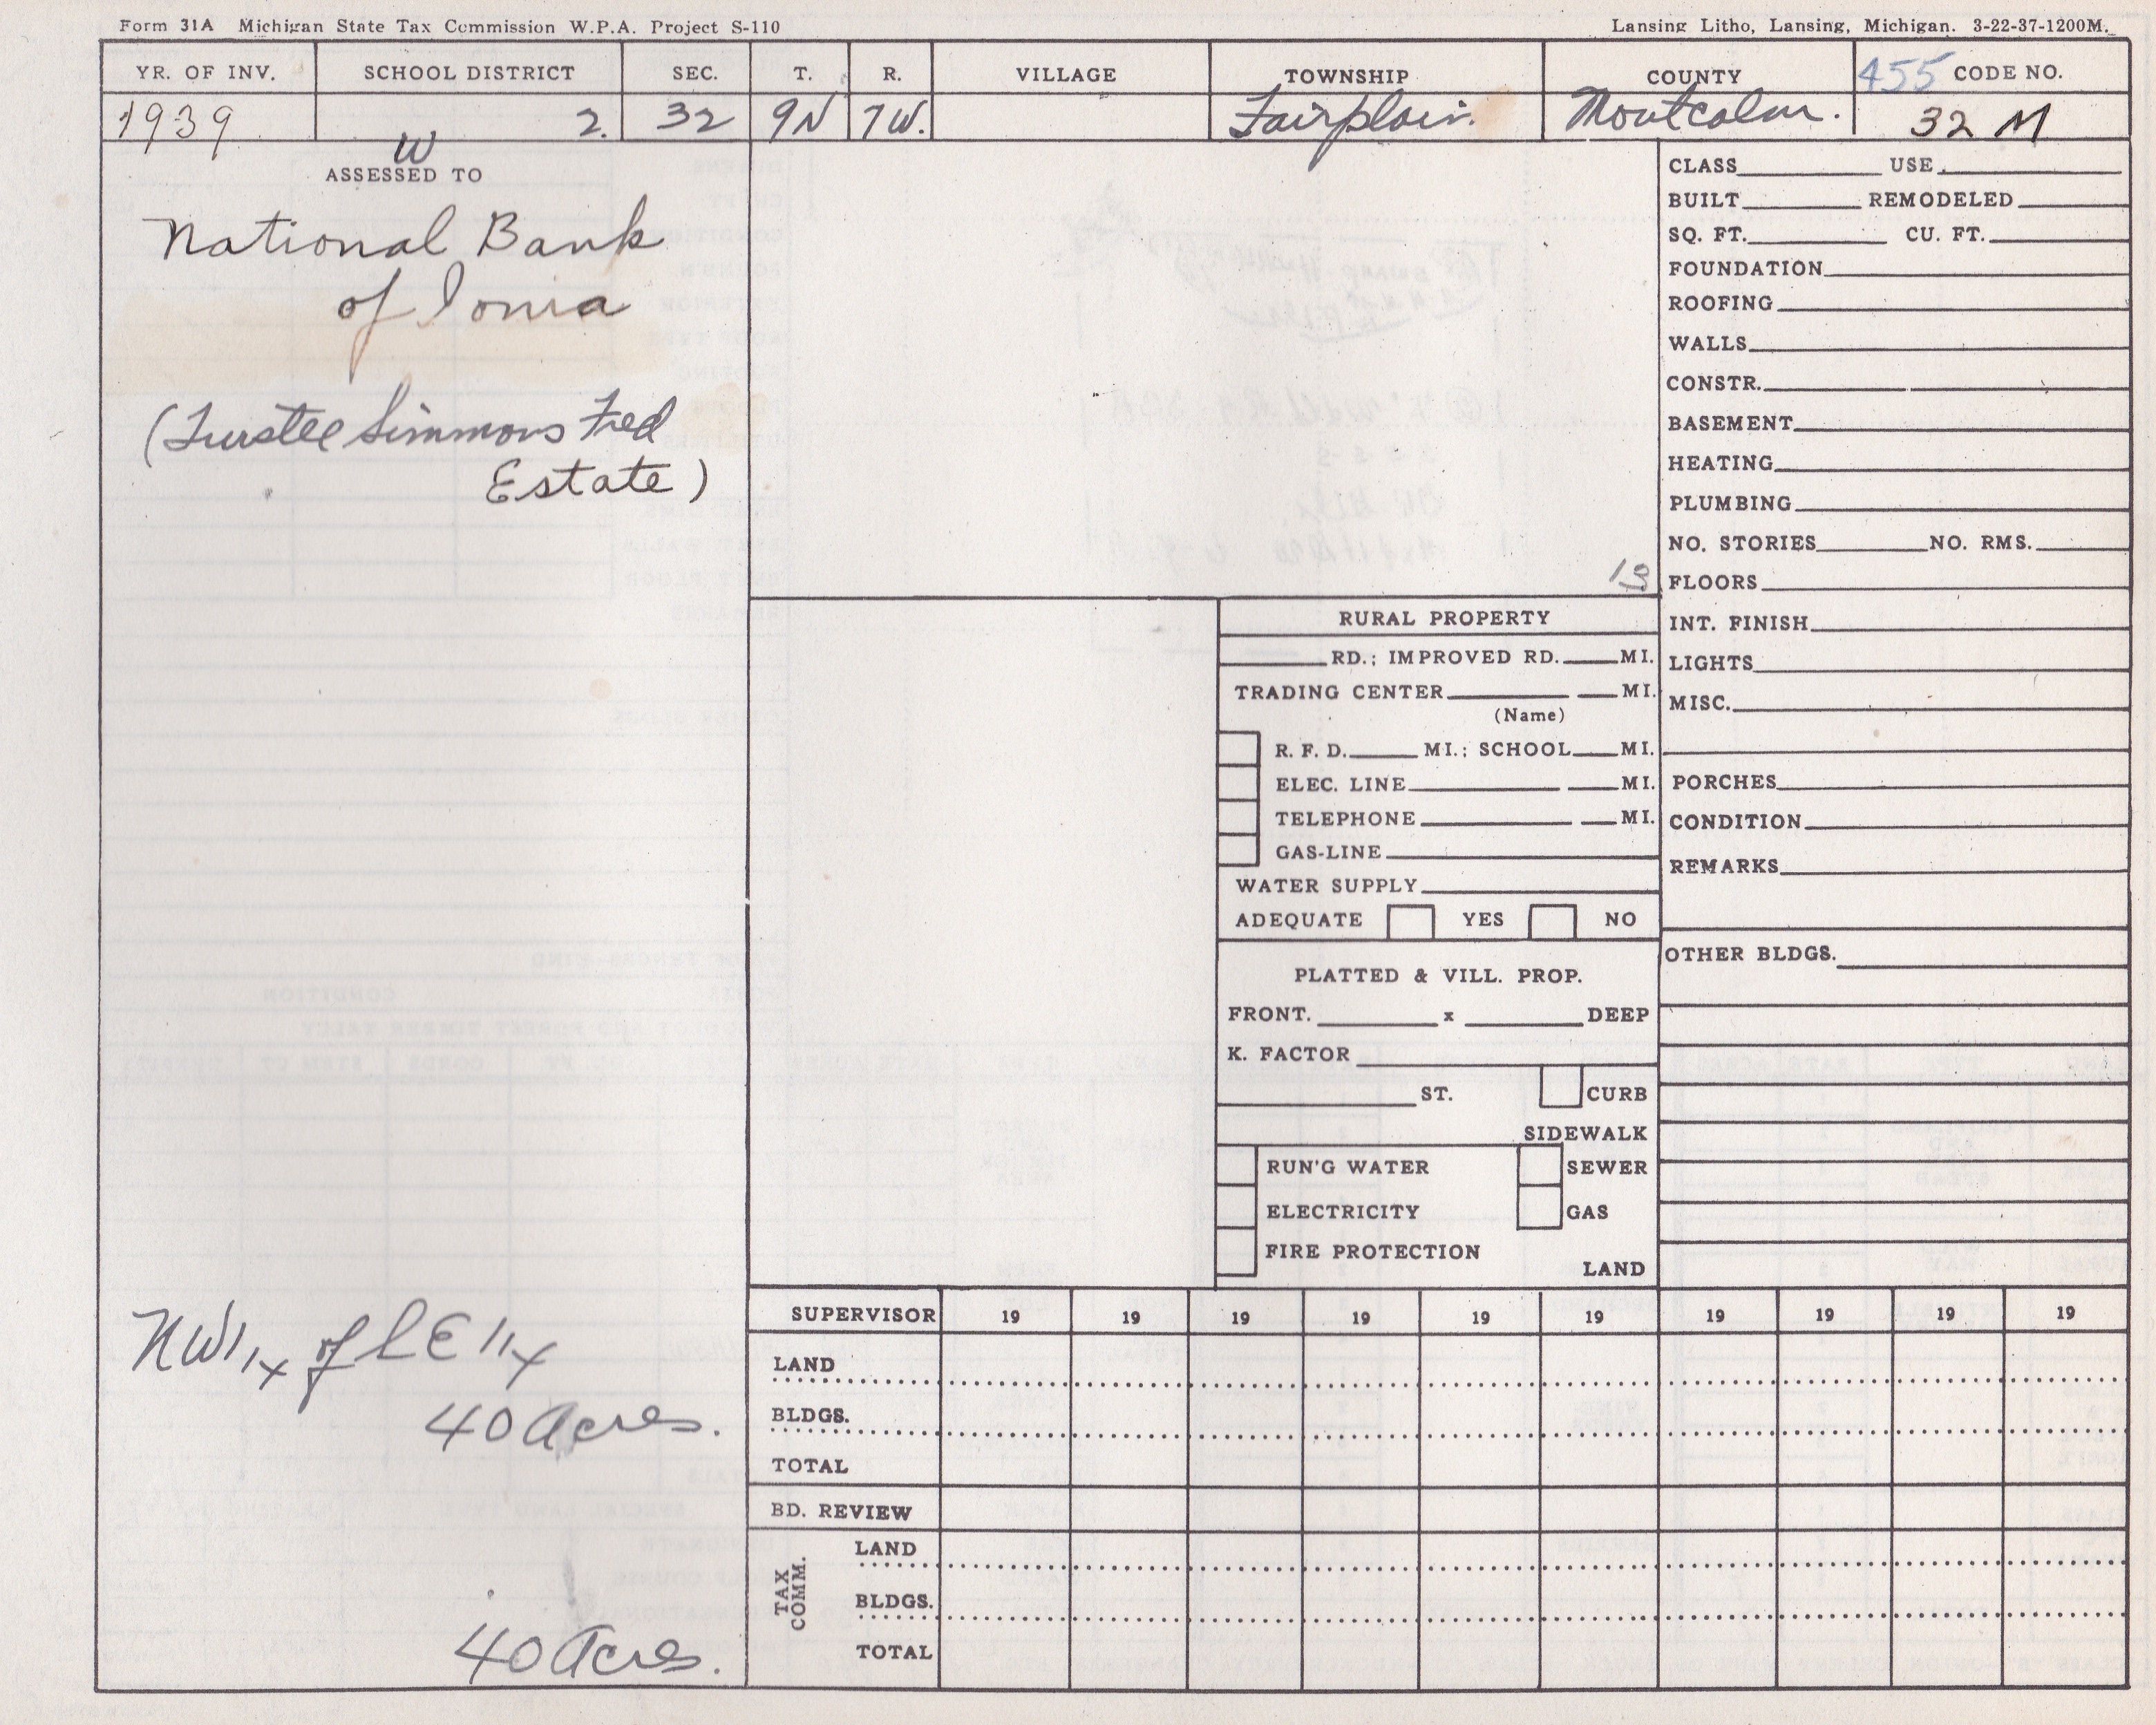 Form 31A Michigan State Tax Commission W.P.A. Project S-110
Lansing Litho, Lansing, Michigan. 3-22-37-1200M.
YR. OF INV. SCHOOL DISTRICT SEC. T. R. VILLAGE TOWNSHIP COUNTY 455 CODE NO.
1939 2. 32 9N 7W. Fairplain. Montcalm. 32 M
W
ASSESSED TO
National Bank
of Ionia
(Turstee Simmons Fred
Estate)
NW 1/4 of SE 1/4
40 Acres.
40 Acres.
13
RURAL PROPERTY
RD.; IMPROVED RD. MI.
TRADING CENTER MI.
(Name)
R. F. D. MI.; SCHOOL MI.
ELEC. LINE MI.
TELEPHONE MI.
GAS-LINE
WATER SUPPLY
ADEQUATE YES NO
PLATTED & VILL. PROP.
FRONT. x DEEP
K. FACTOR
ST. CURB
SIDEWALK
RUN'G WATER SEWER
ELECTRICITY GAS
FIRE PROTECTION
LAND
CLASS USE
BUILT REMODELED
SQ. FT. CU. FT.
FOUNDATION
ROOFING
WALLS
CONSTR.
BASEMENT
HEATING
PLUMBING
NO. STORIES NO. RMS.
FLOORS
INT. FINISH
LIGHTS
MISC.
PORCHES
CONDITION
REMARKS
OTHER BLDGS.
SUPERVISOR 19 19 19 19 19 19 19 19 19 19
LAND
BLDGS.
TOTAL
BD. REVIEW
TAX COMM.
LAND
BLDGS.
TOTAL